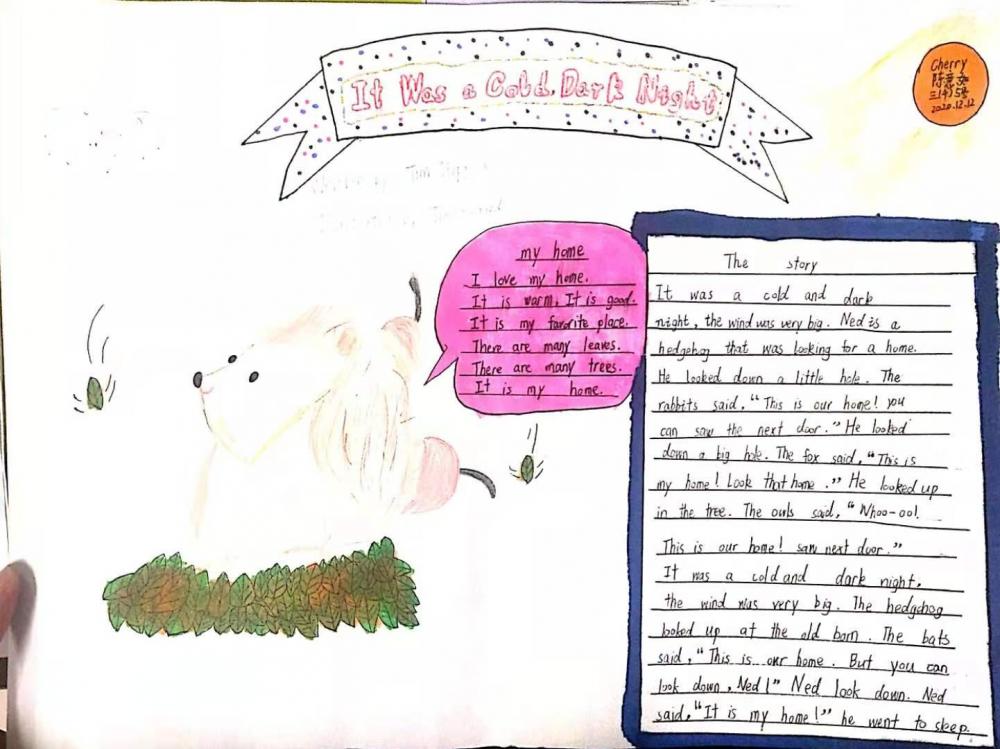 It Was a Cold, Dark Night
Cherry
2020.12.12
my home
I love my home.
It is warm. It is good.
It is my favorite place.
There are many leaves.
There are many trees.
It is my home.
The story
It was a cold and dark
night, the wind was very big. Ned is a
hedgehog that was looking for a home.
He looked down a little hole. The
rabbits said, "This is our home! you
can saw the next door." He looked
down a big hole. The fox said, "This is
my home! Look that home." He looked up
in the tree. The owls said, "Whoo-oo!
This is our home! saw next door."
It was a cold and dark night,
the wind was very big. The hedgehog
looked up at the old barn. The bats
said, "This is our home. But you can
look down, Ned!" Ned look down. Ned
said, "It is my home!" he went to sleep.